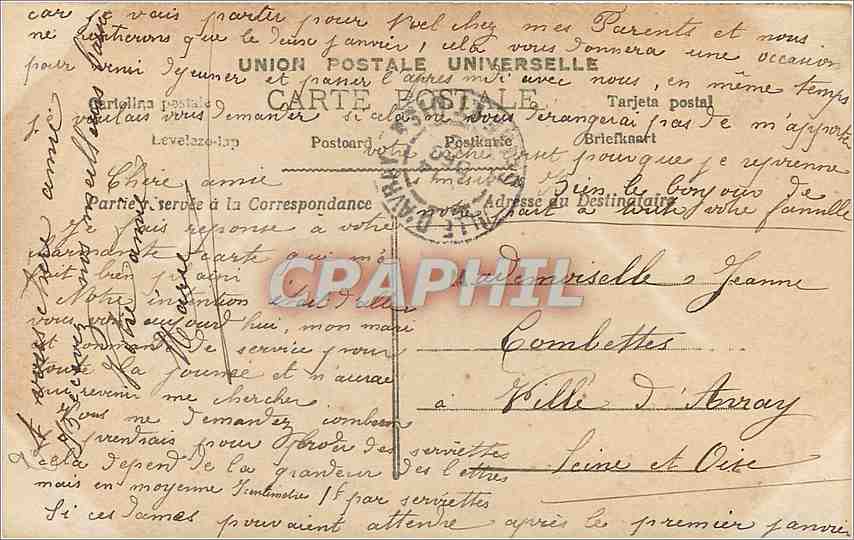 car je vais partir pour Noel chez mes Parents et nous
ne rentrerons que le deux janvier, cela vous donnera une occasion
pour venir dejeuner et passer l'après midi avec nous, en même temps
je voulais vous demander si cela ne vous derangerai pas de m'apporter
votre corset pour que je reprenne
mesure Bien le bonjour de
notre part à toute votre famille
UNION POSTALE UNIVERSELLE
CARTE POSTALE
Cartolina postale Tarjeta postal
Levelezo-lap Postcard Postkarte Briefkaart
Partie réservée à la Correspondance Adresse du Destinataire
VILLE D'AVRAY
Chère amie
Je fais reponse à votre
carte qui m'a
fait bien plaisir
Notre intention était d'aller
vous voir aujourd'hui, mon mari
est de service pour
toute la journée et n'aurai
pu revenir me chercher
Vous me demandez combien
je prendrais pour broder des serviettes
cela depend de la grandeur des lettres
mais en moyenne 1f par serviettes
Si ces dames pouvaient attendre après le premier janvier
A vous chère amie
Recevez nos meilleurs baisers
Votre amie
Marie
Mademoiselle Jeanne
Combettes
à Ville d'Avray
Seine et Oise
CPARPHIL